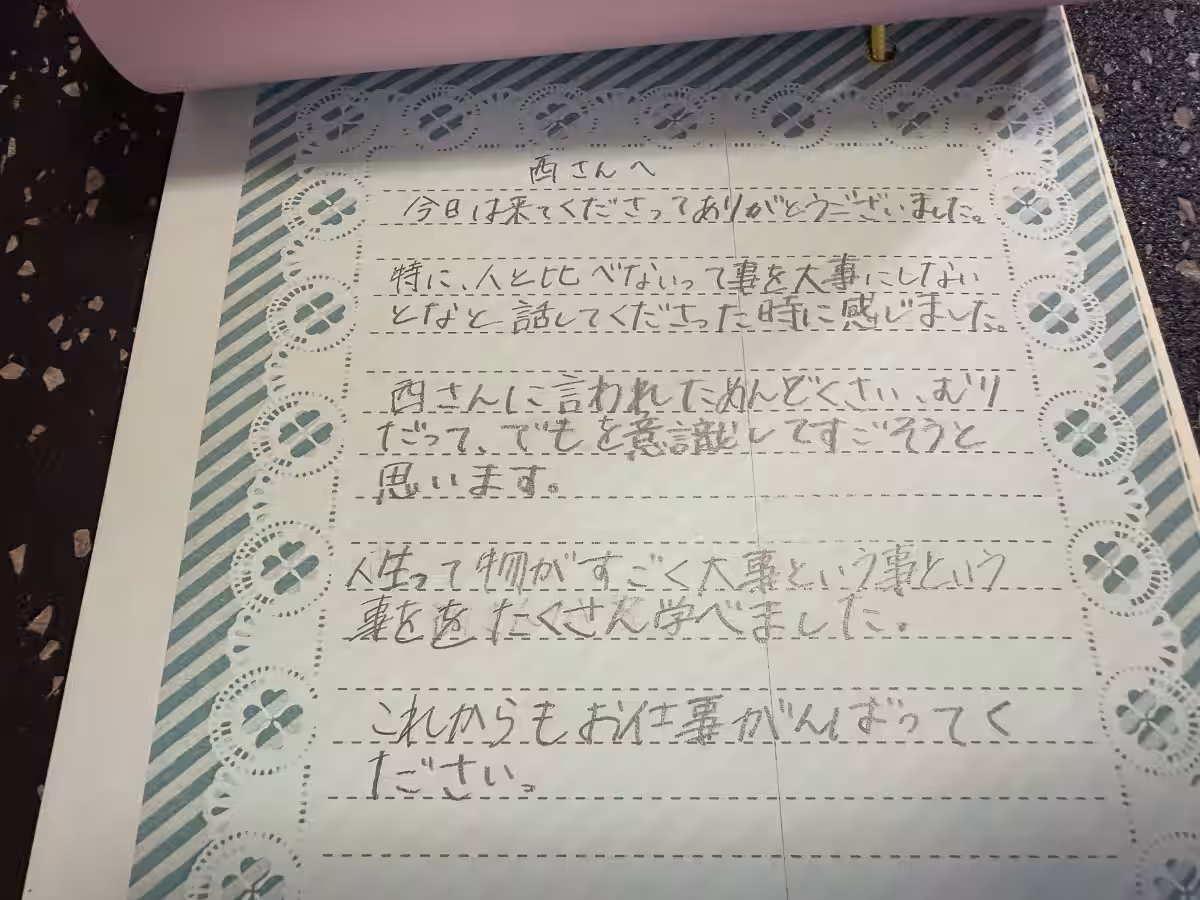 西さんへ
今日は来てくださってありがとうございました。
特に、人と比べないって事を大事にしない
となと話してくださった時に感じました。
西さんに言われためんどくさい、むり
だって、でもを意識してすごそうと
思います。
人生って物がすごく大事という事という
事をを たくさん学べました。
これからもお仕事がんばってく
ださい。